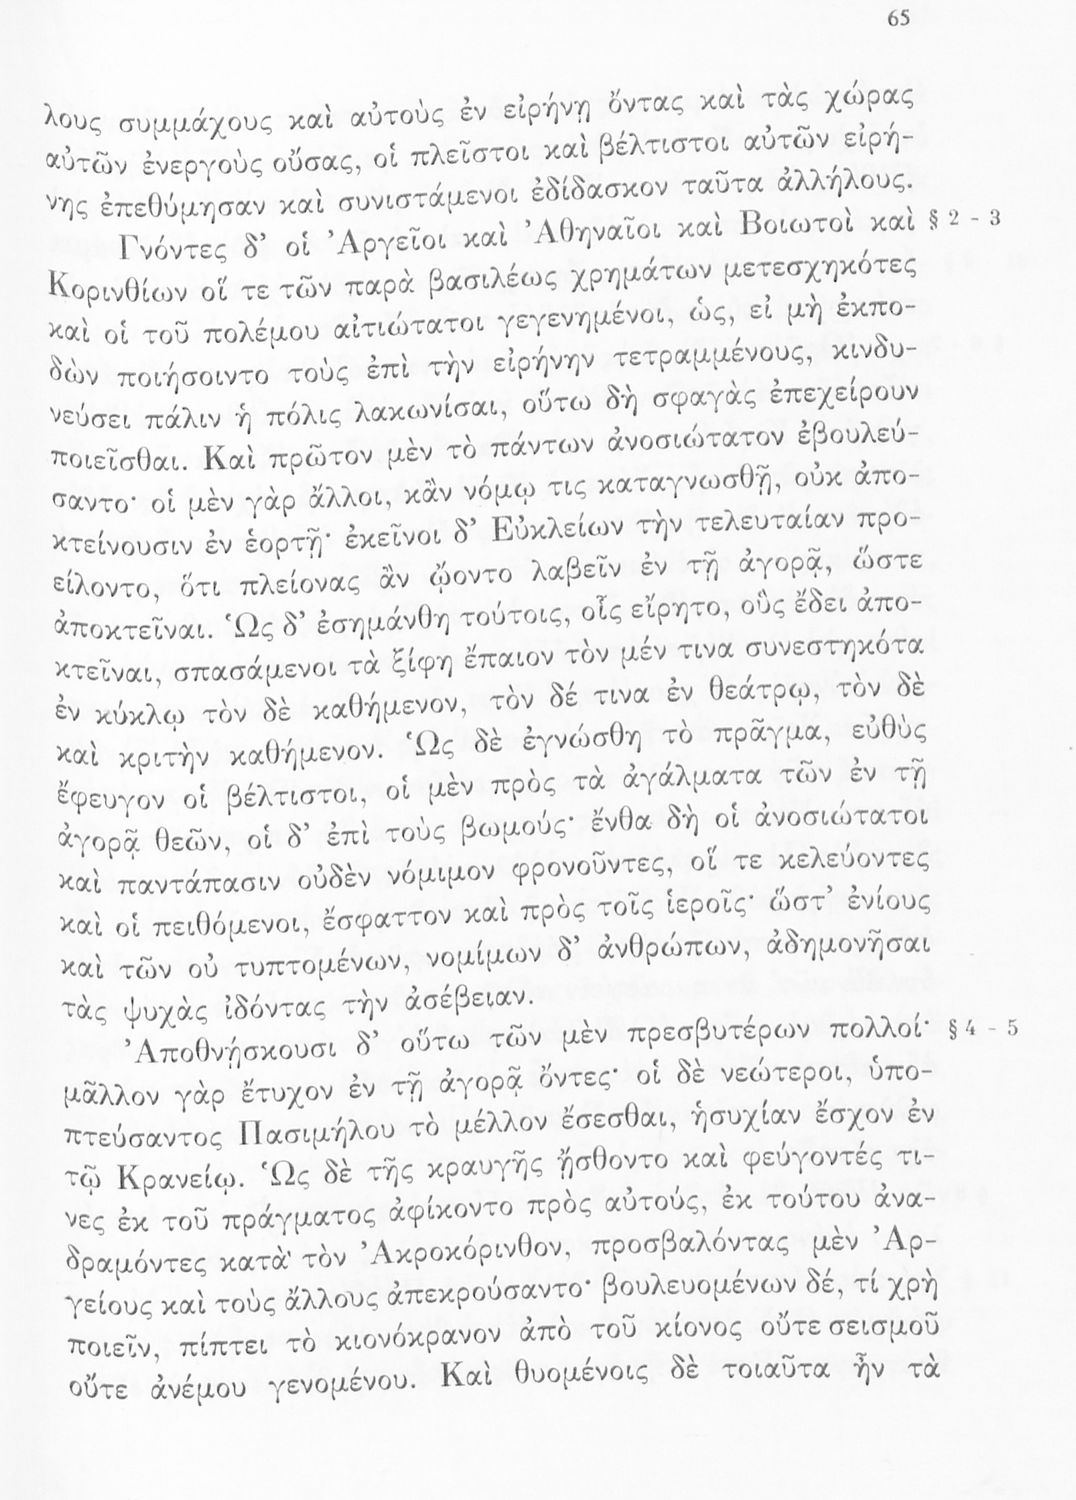 65
λους συμμάχους καὶ αὐτοὺς ἐν εἰρήνῃ ὄντας καὶ τὰς χώρας
αὐτῶν ἐνεργοὺς οὔσας, οἱ πλεῖστοι καὶ βέλτιστοι αὐτῶν εἰρή-
νης ἐπεθύμησαν καὶ συνιστάμενοι ἐδίδασκον ταῦτα ἀλλήλους.
Γνόντες δ’ οἱ Ἀργεῖοι καὶ Ἀθηναῖοι καὶ Βοιωτοὶ καὶ § 2 - 3
Κορινθίων οἵ τε τῶν παρὰ βασιλέως χρημάτων μετεσχηκότες
καὶ οἱ τοῦ πολέμου αἰτιώτατοι γεγενημένοι, ὡς, εἰ μὴ ἐκπο-
δὼν ποιήσοιντο τοὺς ἐπὶ τὴν εἰρήνην τετραμμένους, κινδυ-
νεύσει πάλιν ἡ πόλις λακωνίσαι, οὕτω δὴ σφαγὰς ἐπεχείρουν
ποιεῖσθαι. Καὶ πρῶτον μὲν τὸ πάντων ἀνοσιώτατον ἐβουλεύ-
σαντο· οἱ μὲν γὰρ ἄλλοι, κἂν νόμῳ τις καταγνωσθῇ, οὐκ ἀπο-
κτείνουσιν ἐν ἑορτῇ· ἐκεῖνοι δ’ Εὐκλείων τὴν τελευταίαν προ-
είλοντο, ὅτι πλείονας ἂν ᾤοντο λαβεῖν ἐν τῇ ἀγορᾷ, ὥστε
ἀποκτεῖναι. Ὡς δ’ ἐσημάνθη τούτοις, οἷς εἴρητο, οὓς ἔδει ἀπο-
κτεῖναι, σπασάμενοι τὰ ξίφη ἔπαιον τὸν μέν τινα συνεστηκότα
ἐν κύκλῳ τὸν δὲ καθήμενον, τὸν δέ τινα ἐν θεάτρῳ, τὸν δὲ
καὶ κριτὴν καθήμενον. Ὡς δὲ ἐγνώσθη τὸ πρᾶγμα, εὐθὺς
ἔφευγον οἱ βέλτιστοι, οἱ μὲν πρὸς τὰ ἀγάλματα τῶν ἐν τῇ
ἀγορᾷ θεῶν, οἱ δ’ ἐπὶ τοὺς βωμούς· ἔνθα δὴ οἱ ἀνοσιώτατοι
καὶ παντάπασιν οὐδὲν νόμιμον φρονοῦντες, οἵ τε κελεύοντες
καὶ οἱ πειθόμενοι, ἔσφαττον καὶ πρὸς τοῖς ἱεροῖς· ὥστ’ ἐνίους
καὶ τῶν οὐ τυπτομένων, νομίμων δ’ ἀνθρώπων, ἀδημονῆσαι
τὰς ψυχὰς ἰδόντας τὴν ἀσέβειαν.
Ἀποθνῄσκουσι δ’ οὕτω τῶν μὲν πρεσβυτέρων πολλοί· § 4 - 5
μᾶλλον γὰρ ἔτυχον ἐν τῇ ἀγορᾷ ὄντες· οἱ δὲ νεώτεροι, ὑπο-
πτεύσαντος Πασιμήλου τὸ μέλλον ἔσεσθαι, ἡσυχίαν ἔσχον ἐν
τῷ Κρανείῳ. Ὡς δὲ τῆς κραυγῆς ᾔσθοντο καὶ φεύγοντές τι-
νες ἐκ τοῦ πράγματος ἀφίκοντο πρὸς αὐτούς, ἐκ τούτου ἀνα-
δραμόντες κατὰ τὸν Ἀκροκόρινθον, προσβαλόντας μὲν Ἀρ-
γείους καὶ τοὺς ἄλλους ἀπεκρούσαντο· βουλευομένων δέ, τί χρὴ
ποιεῖν, πίπτει τὸ κιονόκρανον ἀπὸ τοῦ κίονος οὔτε σεισμοῦ
οὔτε ἀνέμου γενομένου. Καὶ θυομένοις δὲ τοιαῦτα ἦν τὰ